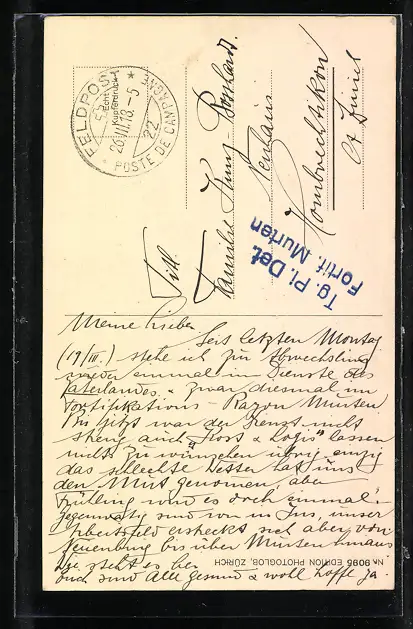 FELDPOST
26.III.18.-5
22
* POSTE DE CAMPAGNE
Echt
Kupferdruck
Tit.
Familie Kunz-Bosshardt
Neuhaus
Hombrechtikon
Ct Zürich
Tg. Pi. Det.
Fortif. Murten
Meine Lieben
Seit letzten Montag
(19/III.) stehe ich zur Abwechslung
wieder einmal im Dienste des
Vaterlandes. zwar diesmal im
Fortifikations-Rayon Murten
Bis jetzt war der Dienst nicht
streng auch "Kost & Logis" lassen
nichts zu wünschen übrig einzig
das schlechte Wetter hat uns
den Mut genomen, aber
Frühling wird es doch einmal.
Gegenwärtig sind wir in Ins, unser
Arbeitsfeld erstreckt sich aber von
Neuenburg bis über Murten hinaus
steht es bei
Euch sind Alle gesund & wohl hoffe ja
No. 9095 EDITION PHOTOGLOB, ZÜRICH